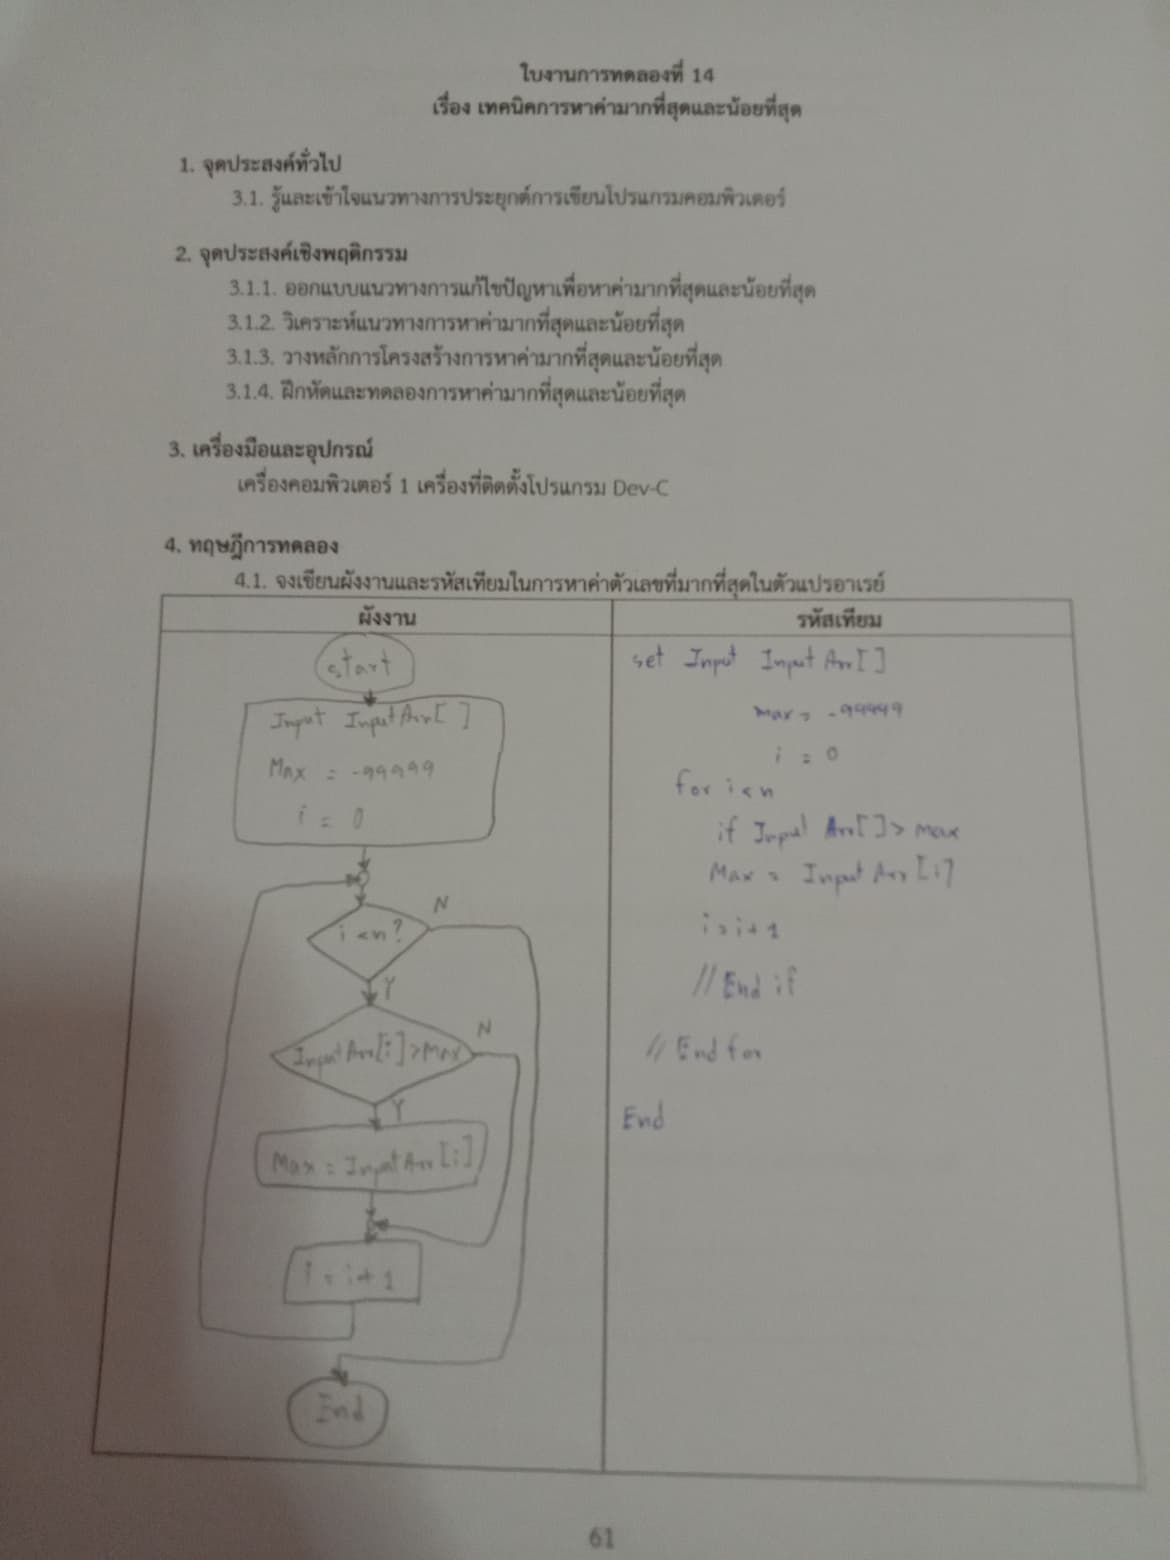 ใบงานการทดลองที่ 14
เรื่อง เทคนิคการหาค่ามากที่สุดและน้อยที่สุด
1. จุดประสงค์ทั่วไป
3.1. รู้และเข้าใจแนวทางการประยุกต์การเขียนโปรแกรมคอมพิวเตอร์
2. จุดประสงค์เชิงพฤติกรรม
3.1.1. ออกแบบแนวทางการแก้ไขปัญหาเพื่อหาค่ามากที่สุดและน้อยที่สุด
3.1.2. วิเคราะห์แนวทางการหาค่ามากที่สุดและน้อยที่สุด
3.1.3. วางหลักการโครงสร้างการหาค่ามากที่สุดและน้อยที่สุด
3.1.4. ฝึกหัดและทดลองการหาค่ามากที่สุดและน้อยที่สุด
3. เครื่องมือและอุปกรณ์
เครื่องคอมพิวเตอร์ 1 เครื่องที่ติดตั้งโปรแกรม Dev-C
4. ทฤษฎีการทดลอง
4.1. จงเขียนผังงานและรหัสเทียมในการหาค่าตัวเลขที่มากที่สุดในตัวแปรอาเรย์
ผังงาน
start
Input InputArr[ ]
Max = -99999
i = 0
i <n?
N
Y
InputArr[i]>Max
N
Y
Max = InputArr[i]
i = i+ 1
End
รหัสเทียม
set Input InputArr[]
max = -99999
i = 0
for i<n
if Input Arr[]> max
Max = InputArr[i]
i = i+ 1
// End if
// End for
End
61